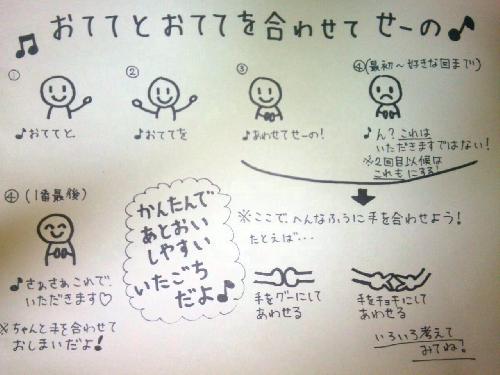 ♫ おててとおててを合わせて せーの♪
①
♪おててと
②
♪おててを
③
♪あわせてせーの!
④(最初〜好きな回まで)
♪ん?これは
いただきますではない!
※2回目以候は
これもにする!
④(1番最後)
♪さぁさあこれで
いただきます♡
※ちゃんと手を合わせて
おしまいだよ!
かんたんで
あとおい
しやすい
いたごち
だよ♪
※ここでへんなふうに手を合わせよう!
たとえば…
手をグーにして
あわせる
手をチョキにして
あわせる
いろいろ考えて
みてね!